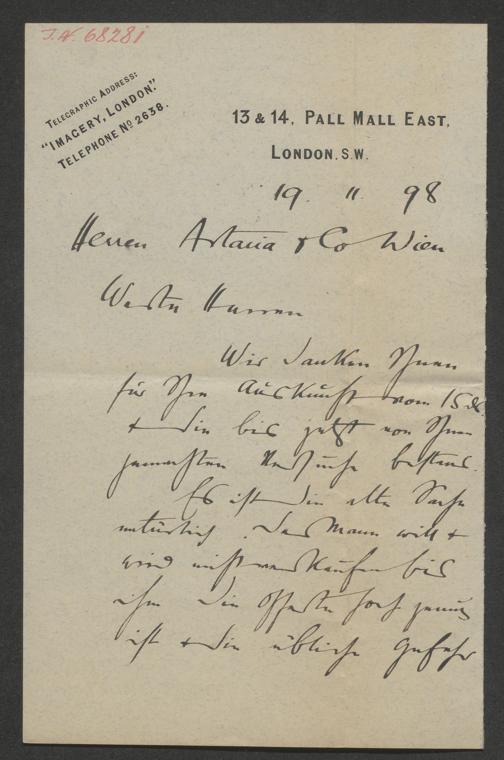 J.N. 68281
TELEGRAPHIC ADDRESS:
"IMAGERY, LONDON."
TELEPHONE No 2638.
13 & 14, PALL MALL EAST,
LONDON. S.W.
19. 11 98
Herren Artaria & Co Wien
Werthe Herren
Wir danken Ihnen
für Ihre Auskunft vom 15 ds.
& die bis jetzt von Ihnen
gemachten Versuche bestens.
Es ist die alte Sache
natürlich. Der Mann will &
wird nicht verkaufen bis
ihm die Offerte hoch genug
ist & die übliche Gefahr